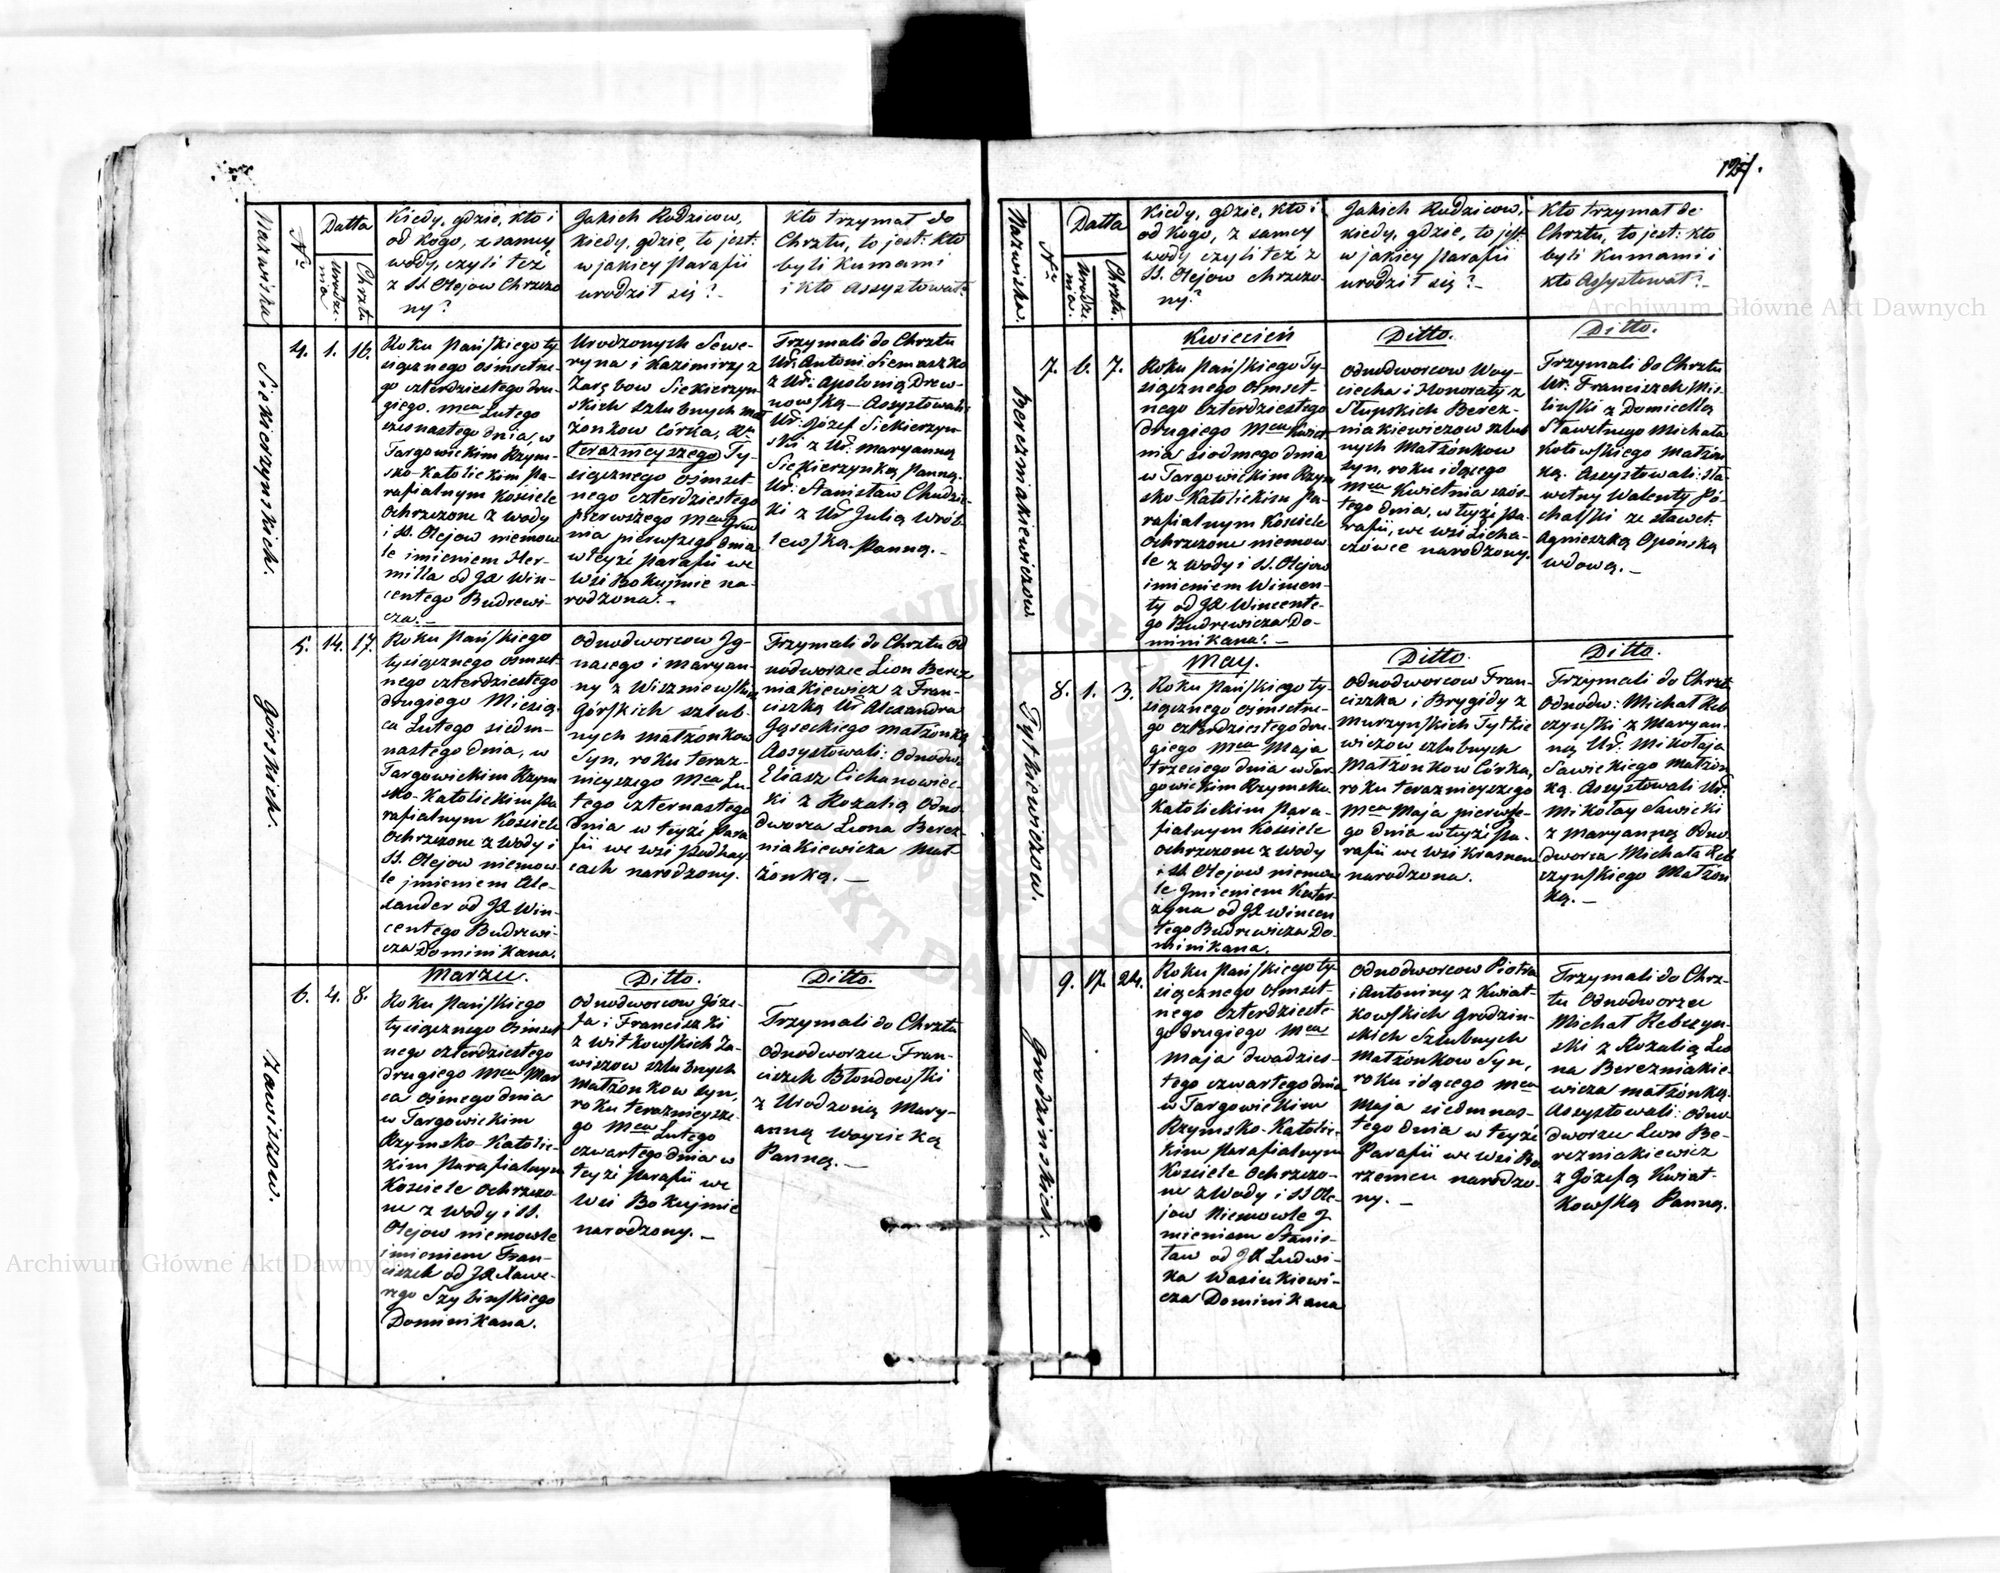 127.
Nazwiska
N<sup>o</sup>
Datta
Urodze-
nia.
Chrztu
Kiedy, gdzie, kto i
od kogo, z samey
wody, czyli też
z SS. Olejow Chrzczo
ny?
Jakich Rodzicow,
kiedy, gdzie, to jest:
w jakiey Parafii
urodził się?
Kto trzymał do
Chrztu, to jest: kto
byli Kumami
i kto Assystował?
Siekierzynskich.
4.
1.
16.
Roku Pańskiego ty
siącznego ośmsetne-
go czterdziestego dru-
giego. Mca Lutego
szesnastego dnia, w
Targowickim Rzym-
sko-Katolickim Pa-
rafialnym Kościele
Ochrzczone z Wody
i SS. Olejow niemow
le imieniem Her-
milla od JX Win-
centego Budrewi-
cza.
Urodzonych Sewe-
ryna i Kazimirzy z
Zarębow Siekierzyn-
skich szlubnych Mał
żonkow Córka, R<sup>ku</sup>
teraznieyszego Ty-
siącznego ośmset-
nego czterdziestego
pierwszego Mca Grud
nia pierwszego dnia
w teyże Parafii we
Wsi Bokujmie na-
rodzona.
Trzymali do Chrztu
Ur: Antoni Siemaszko
z Ur: Apolonią Drew-
nowską - Assystowali
Ur: Józef Siekierzyn-
ski z Ur: Maryanną
Siekierzynską Panną.
Ur: Stanisław Chudzic-
ki z Ur: Julią Wrób-
lewską Panną.
Górskich.
5.
14.
17.
Roku Pańskiego
tysiącznego ośmset-
nego czterdziestego
drugiego Miesią-
ca Lutego siedm-
nastego dnia, w
Targowickim Rzym
sko-Katolickim Pa
rafialnym Kościele
Ochrzczone z Wody i
SS. Olejow niemow
le jmieniem Ale-
xander od JX Win-
centego Budrewi-
cza Dominikana.
Odnodworcow Jg-
nacego i Maryan-
ny z Wiszniewskich
Górskich szlub-
nych Małżonkow
Syn, roku teraz-
nieyszego Mca Lu-
tego czternastego
dnia w teyże Para
fii we Wsi Podhay
cach narodzony.
Trzymali do Chrztu Od
nodworzec Lion Berez
niakiewicz z Fran-
ciszką Ur: Alexandra
Gąseckiego małżonką
Assystowali: Odnodw:
Eliasz Cichanowiec-
ki z Rozalią Odno-
dworca Leona Berez-
niakiewicza Mał-
żonką.
Zawiszow.
6.
4.
8.
Marzu.
Roku Pańskiego
tysiącznego Ośmset
nego czterdziestego
drugiego Mca Mar
ca ośmego dnia
w Targowickim
Rzymsko-Katolic-
kim Parafialnym
Kościele Ochrzczo-
ne z Wody i SS.
Olejow niemowle
imieniem Fran-
ciszek od JX Xawe-
rego Szylinskiego
Dominikana.
Ditto.
Odnodworcow Józe-
fa i Franciszki
z Witkowskich Za-
wiszow szlubnych
Małżonkow syn,
roku teraznieysze-
go Mca Lutego
czwartego dnia w
teyże Parafii we
Wsi Bokujmie
narodzony.
Ditto.
Trzymali do Chrztu
Odnodworzec Fran-
ciszek Błondowski
z Urodzoną Mary-
anną Woyzicką
Panną.
Nazwiska.
N<sup>o</sup>
Datta
Urodze-
nia.
Chrztu.
Kiedy, gdzie, kto i
od kogo, z samey
wody czyli też z
SS. Olejow chrzczo-
ny?
Jakich Rodzicow,
kiedy, gdzie, to jest:
w jakiey Parafii
urodził się?
Kto trzymał do
Chrztu, to jest: kto
byli Kumami i
kto Assystował?
Berezniakiewiczow
7.
6.
7.
Kwiecień
Roku Pańskiego Ty-
siącznego Ośmset-
nego czterdziestego
drugiego Mca Kwiet
nia siodmego dnia
w Targowickim Rzym
sko-Katolickim Pa-
rafialnym Kościele
Ochrzczone niemow
le z Wody i SS. Olejow
imieniem Wincen-
ty od JX Wincente-
go Budrewicza Do-
minikana.
Ditto.
Odnodworcow Woy-
ciecha i Honoraty z
Słupskich Berez-
niakiewiczow szlub
nych Małżonkow
syn, roku idącego
Mca Kwietnia szós-
tego dnia, w teyże Pa-
rafii, we wsi Licha-
czówce narodzony.
Ditto.
Trzymali do Chrztu
Ur: Franciszek Mis-
linski z Domicellą
Sławetnego Michała
Kotowskiego małżon
ką. Assystowali: Sła-
wetny Walenty Pó-
chalski ze sławet:
Agnieszką Opońską
wdową.
Tytkiewiczow.
8.
1.
3.
May.
Roku Pańskiego ty-
siącznego ośmsetne-
go czterdziestego dru-
giego Mca Maja
trzeciego dnia w Tar-
gowickim Rzymsko
Katolickim Para-
fialnym Kościele
Ochrzczone z Wody
i SS. Olejow niemow
le Jmieniem Katar-
zyna od JX Wincen
tego Budrewicza Do-
minikana.
Ditto.
Odnodworcow Fran-
ciszka i Brygidy z
Murzynskich Tytkie
wiczow szlubnych
Małżonkow Córka,
roku teraznieyszego
Mca Maja pierwsze-
go dnia w teyże Pa-
rafii we Wsi Krasnem
narodzona.
Ditto.
Trzymali do Chrztu
Odnodw: Michał Reb
czynski z Maryan-
ną Ur: Mikołaja
Sawickiego Małżon
ką. Assystowali Ur:
Mikołay Sawicki
z Maryanną Odno-
dworca Michała Reb
czynskiego Małżon
ką.
Grodzinskich.
9.
17.
24.
Roku Pańskiego ty-
siącznego ośmset-
nego czterdzieste-
go drugiego Mca
Maja dwadzies-
tego czwartego dnia
w Targowickim
Rzymsko-Katolic-
kim Parafialnym
Kościele Ochrzczo-
ne z Wody i SS Ole-
jow Niemowle J-
mieniem Stanis-
ław od JX Ludwi-
ka Wasiukiewi-
cza Dominikana
Odnodworcow Piotra
i Antoniny z Kwiat-
kowskich Grodzin-
skich Szlubnych
Małżonkow Syn,
roku idącego Mca
Maja siedmnas-
tego dnia w teyże
Parafii we Wsi Bo
rzemcu narodzo-
ny.
Trzymali do Chrz-
tu Odnodworzec
Michał Rebczyn-
ski z Rozalią Leo
na Berezniakie-
wicza małżonką.
Assystowali: Odno-
dworzec Leon Be-
rezniakiewicz
z Józefą Kwiat-
kowską Panną.
Archiwum Główne Akt Dawnych
Archiwum Główne Akt Dawnych